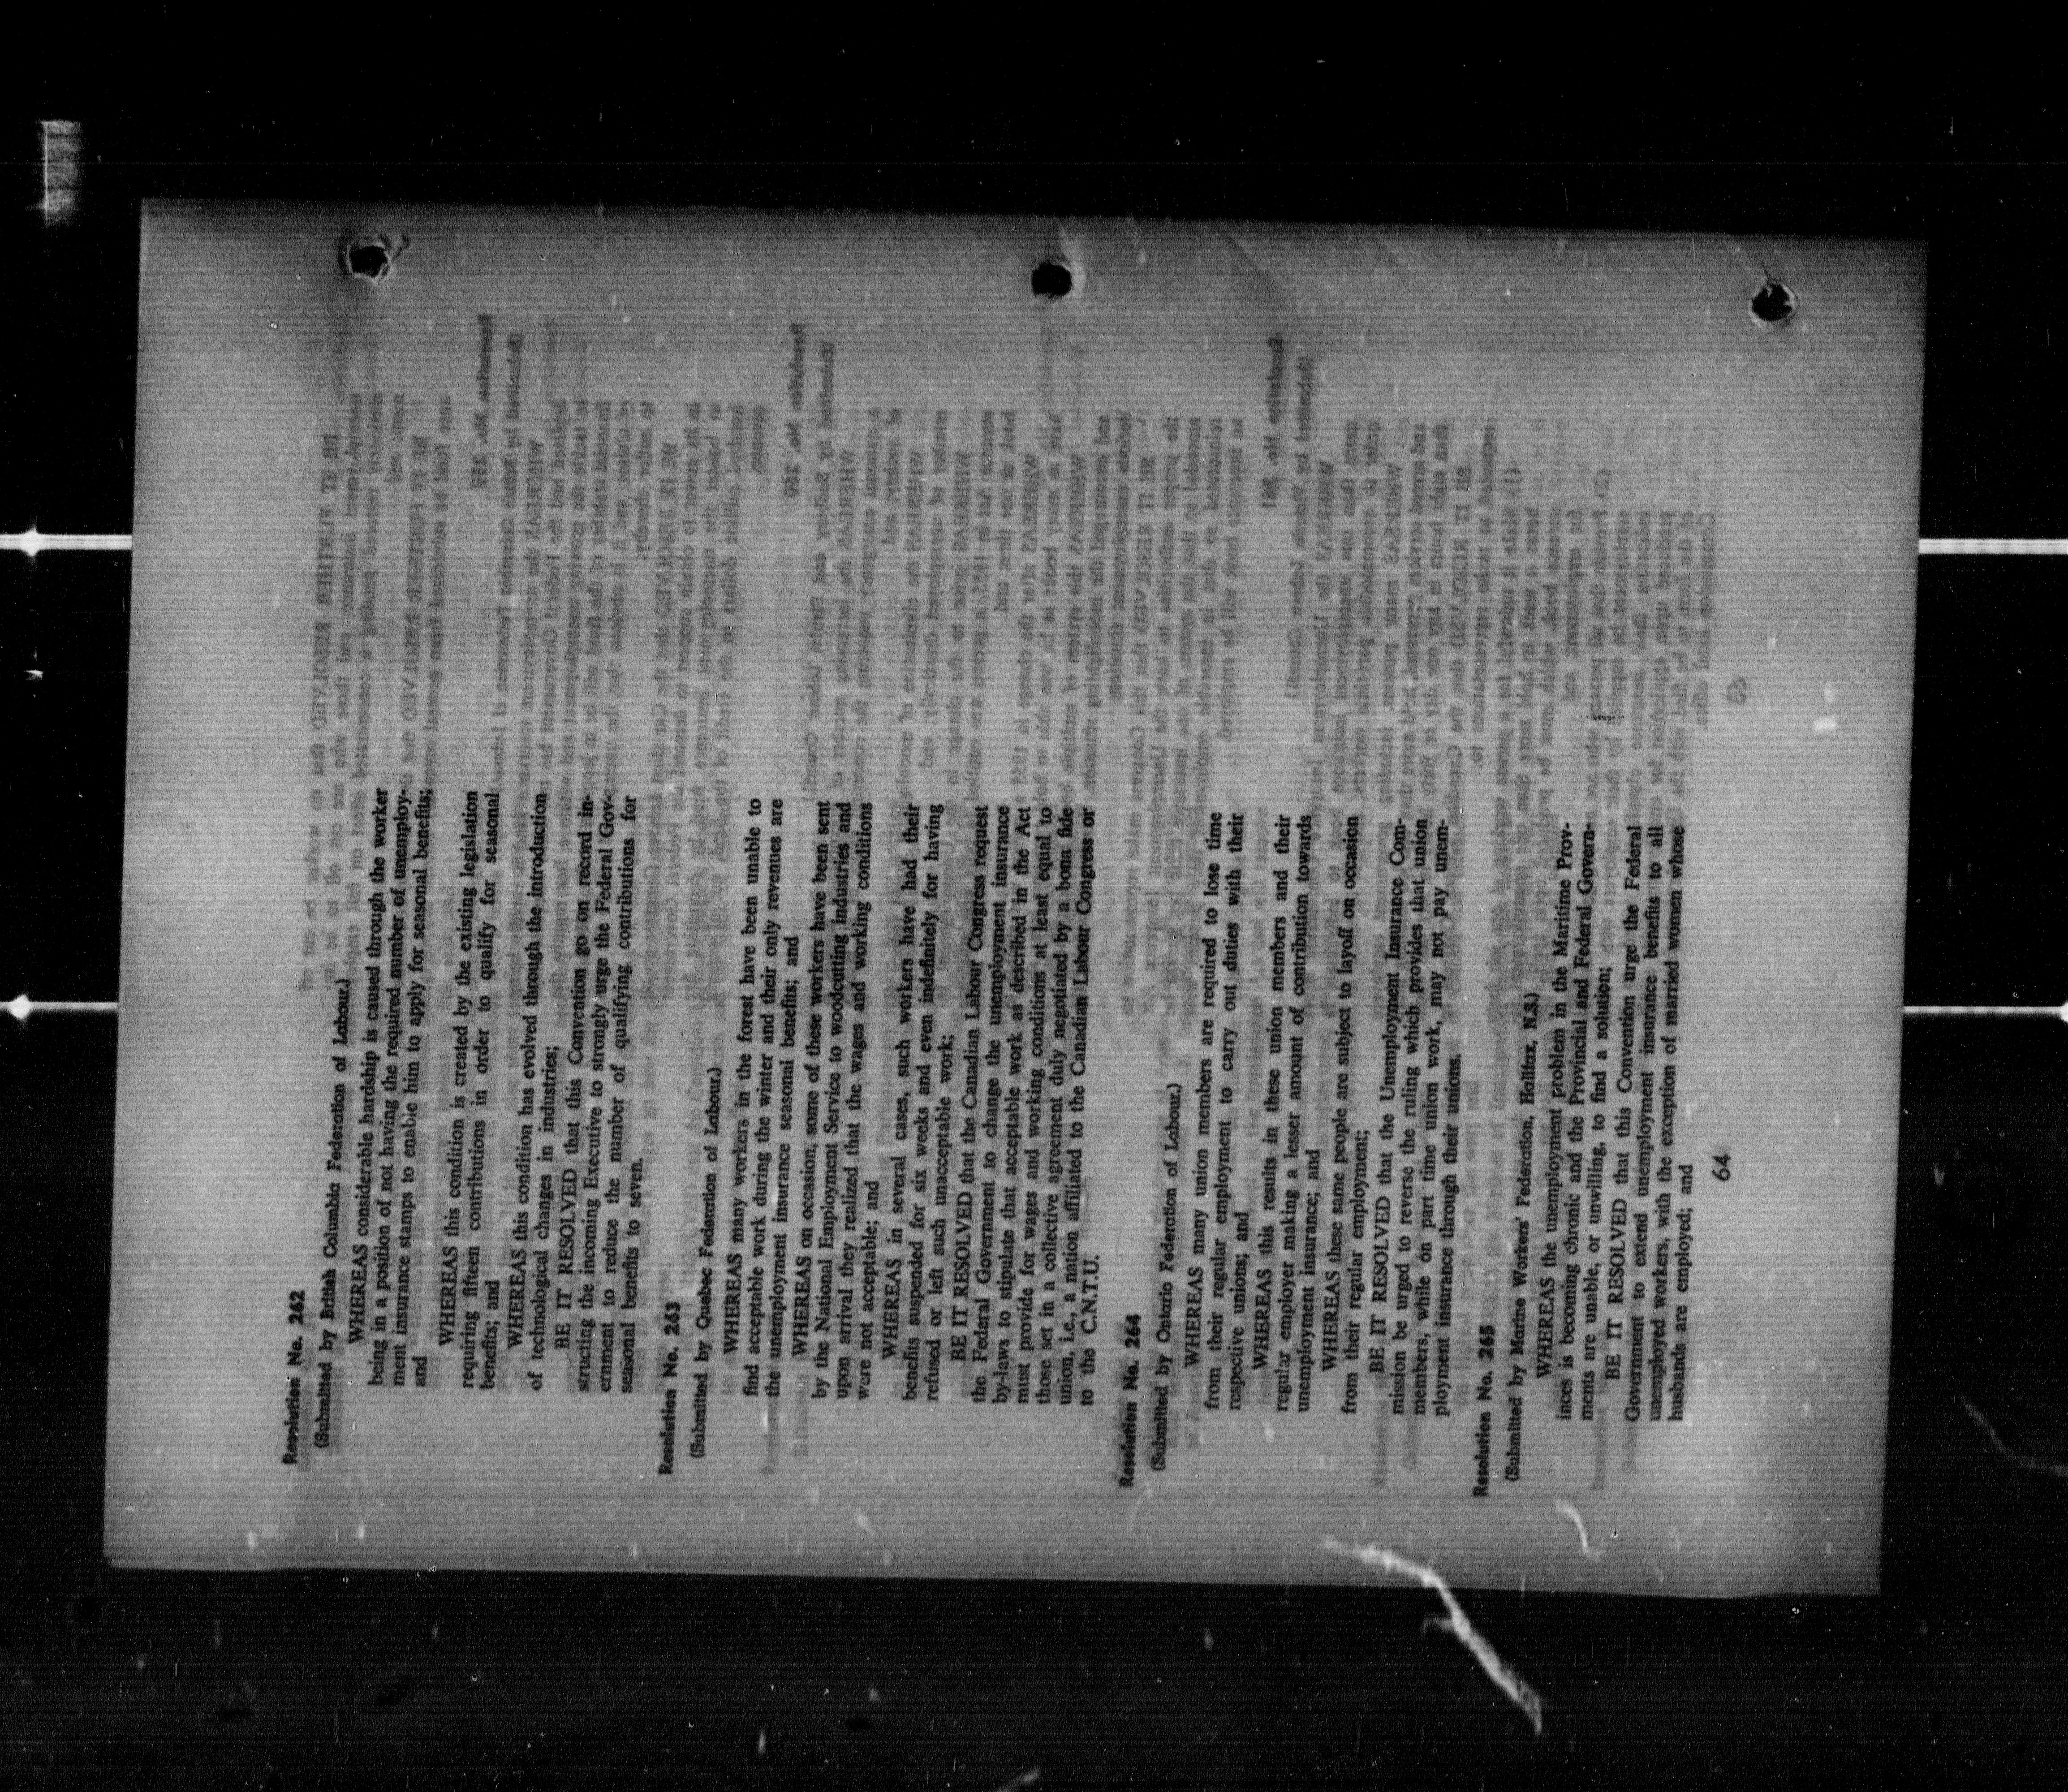 Resolution No. 262
(Submitted by British Columbia Federation of Labour.)
WHEREAS considerable hardship is caused through the worker
being in a position of not having the required number of unemploy-
ment insurance stamps to enable him to apply for seasonal benefits;
and
WHEREAS this condition is created by the existing legislation
requiring fifteen contributions in order to qualify for seasonal
benefits; and
WHEREAS this condition has evolved through the introduction
of technological changes in industries;
BE IT RESOLVED that this Convention go on record in-
structing the incoming Executive to strongly urge the Federal Gov-
ernment to reduce the number of qualifying contributions for
seasonal benefits to seven.
Resolution No. 263
(Submitted by Quebec Federation of Labour.)
WHEREAS many workers in the forest have been unable to
find acceptable work during the winter and their only revenues are
the unemployment insurance seasonal benefits; and
WHEREAS on occasion, some of these workers have been sent
by the National Employment Service to woodcutting industries and
upon arrival they realized that the wages and working conditions
were not acceptable; and
WHEREAS in several cases, such workers have had their
benefits suspended for six weeks and even indefinitely for having
refused or left such unacceptable work;
BE IT RESOLVED that the Canadian Labour Congress request
the Federal Government to change the unemployment insurance
by-laws to stipulate that acceptable work as described in the Act
must provide for wages and working conditions at least equal to
those set in a collective agreement duly negotiated by a bona fide
union, i.e., a nation affiliated to the Canadian Labour Congress or
to the C.N.T.U.
Resolution No. 264
(Submitted by Ontario Federation of Labour.)
WHEREAS many union members are required to lose time
from their regular employment to carry out duties with their
respective unions; and
WHEREAS this results in these union members and their
regular employer making a lesser amount of contribution towards
unemployment insurance; and
WHEREAS these same people are subject to layoff on occasion
from their regular employment;
BE IT RESOLVED that the Unemployment Insurance Com-
mission be urged to reverse the ruling which provides that union
members, while on part time union work, may not pay unem-
ployment insurance through their unions.
Resolution No. 265
(Submitted by Marine Workers' Federation, Halifax, N.S.)
WHEREAS the unemployment problem in the Maritime Prov-
inces is becoming chronic and the Provincial and Federal Govern-
ments are unable, or unwilling, to find a solution;
BE IT RESOLVED that this Convention urge the Federal
Government to extend unemployment insurance benefits to all
unemployed workers, with the exception of married women whose
husbands are employed; and
64